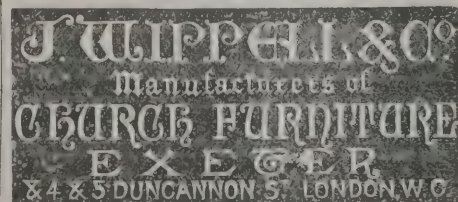 J. WIPPELL & Co.
Manufacturers of
CHURCH FURNITURE
EXETER
& 4 & 5 DUNCANNON ST. LONDON, W.C.